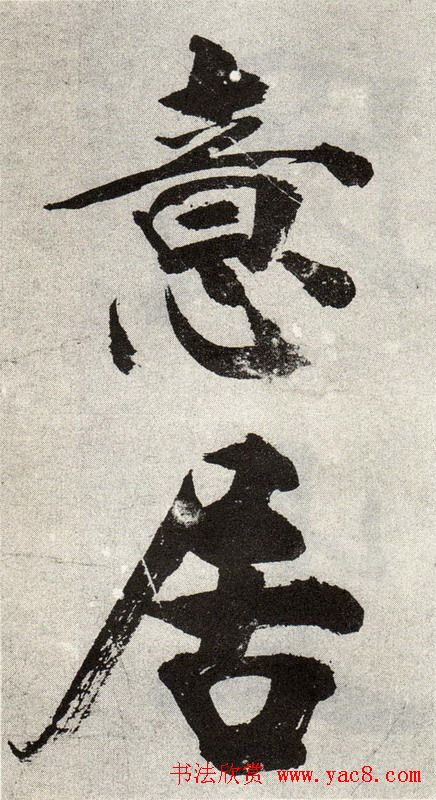 意
居
书法欣赏 www.yac8.com